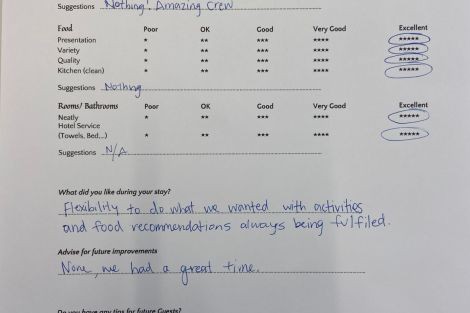 Suggestions Nothing! Amazing Crew
Food Poor OK Good Very Good Excellent
Presentation * ** *** **** *****
Variety * ** *** **** *****
Quality * ** *** **** *****
Kitchen (clean) * ** *** **** *****
Suggestions Nothing
Rooms/ Bathrooms Poor OK Good Very Good Excellent
Neatly * ** *** **** *****
Hotel Service
(Towels, Bed,..) * ** *** **** *****
Suggestions N/A
What did you like during your stay?
Flexibility to do what we wanted with activities
and food recommendations always being fulfiled.
Advise for future improvements
None, we had a great time.
Do you have any tips for future Guests?